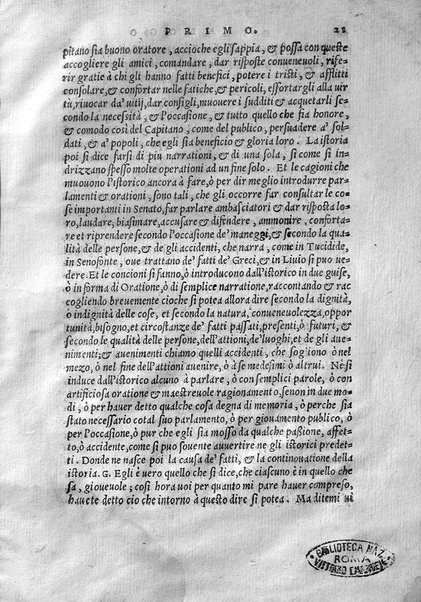 PRIMO. 28
pitano sia buono oratore, accioche egli sappia, & possa con queste
accogliere gli amici, comandare, dar risposte conueneuoli, rife-
rir gratie à chi gli hanno fatti benefici, potere i tristi, & afflitti
consolare, & confortar nelle fatiche, & pericoli, essortargli alla uir
tù, riuocar da' uitij, dar consigli, muouere i sudditi & acquetarli se-
condo la necessità, & l'occasione, & tutto quello che sia honore,
& comodo così del Capitano, come del publico, persuadere a' sol-
dati, & a' popoli, che egli sia beneficio & gloria loro. La istoria
poi si dice farsi di piu narrationi, & di una sola, si come si in-
drizzano spesso molte operationi ad un fine solo. Et le cagioni che
muouono l'istorico ancora à fare, ò per dir meglio introdurre par-
lamenti & orationi, sono tali, che gli occorre far consultar le co-
se importanti in Senato, far parlare ambasciatori & dar risposta lo-
ro, laudare, biasimare, accusare & difendere, ammonire, confortà-
re et riprendere secondo l'occasione de' maneggi, & secondo la qua
lità delle persone, & de gli accidenti, che narra, come in Tucidide,
in Senofonte, oue trattano de' fatti de' Greci, & in Liuio si puo ue-
dere. Et le concioni si fanno, ò introducono dall'istorico in due guise,
ò in forma di Oratione, ò di semplice narratione, raccontando & rac
cogliendo breuemente cioche si potea allora dire secondo la dignità,
o indignità delle cose, et secondo la natura, conueneuolezza, oppor
tunità, bisogno, et circostanze de' fatti passati, presenti, ò futuri, &
secondo le qualità delle persone, dell'attioni, de'luoghi, et de gli aue
nimenti; & auenimenti chiamo quelli accidenti, che sogliono ò nel
mezo, ò nel fine dell'attioni auenire, ò à se medesimi ò altrui. Ne si
induce dall'istorico alcuno à parlare, ò con semplici parole, ò con
artificiosa oratione & maestreuole ragionamento, se non in due mo-
di, ò per hauer detto qualche cosa degna di memoria, ò perche sia
stato necessario cotal suo parlamento, ò per giouamento publico, ò
per l'occasione, ò pur che egli sia mosso da qualche passione, affet-
to, ò accidente, come si puo souente auuertire ne gli istorici predet-
ti. Donde ne nasce poi la causa de' fatti, & la continouatione della
istoria. G. Egli è uero quello che si dice, che ciascuno è in quello che
sa, gioueuole; così hora uoi per quanto mi pare hauer compreso,
hauete detto cio che intorno à questo dire si potea. Ma ditemi ui
BIBLIOTECA NAZ.
ROMA
VITTORIO EMANUELE